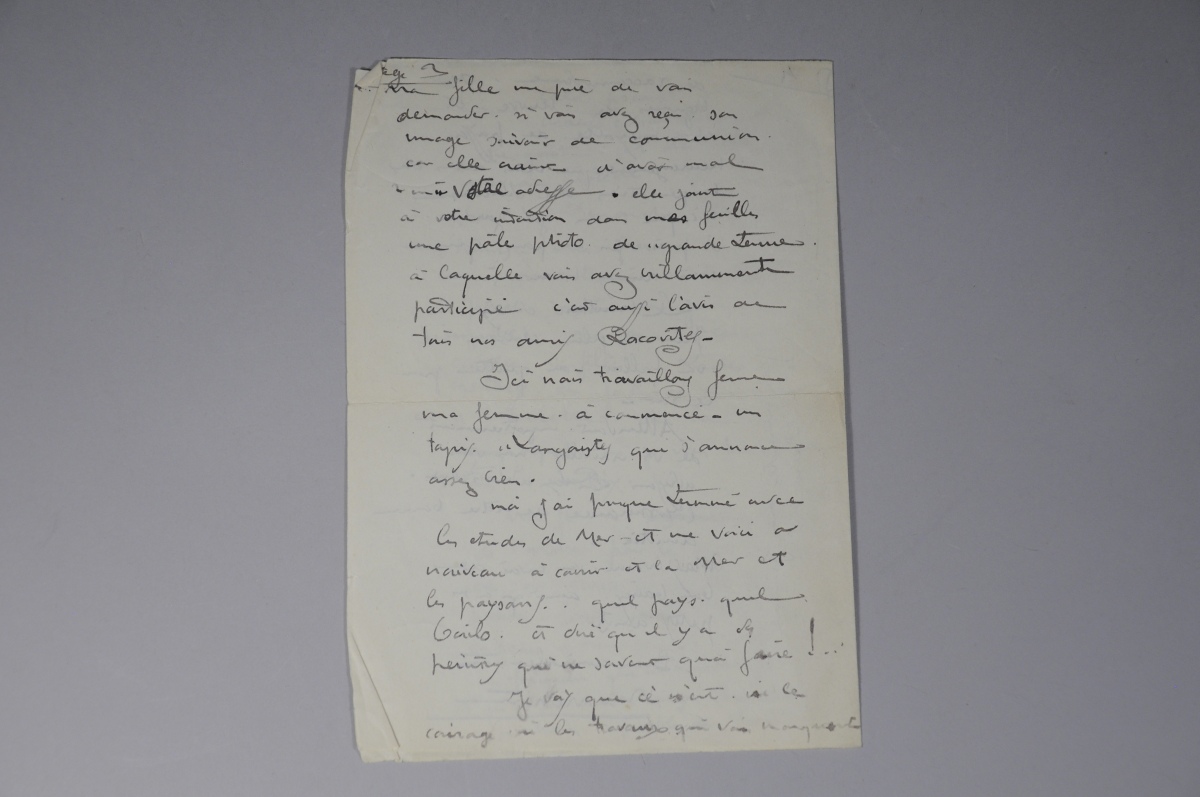 page 3
ma fille me prie de vous
demander. si vous avez reçu. son
image souvenir de communion.
car elle craint d'avoir mal
votre adresse. elle joint
à votre intention dans mes feuilles
une pâle photo. de "grande
à laquelle vous avez brillamment
participé c'est aussi l'avis de
tous nos amis
Ici nous travaillons ferme
ma femme. à commencé - un
tapis. que s'annonce
assez bien.
moi j'ai presque terminé avec
les etudes de Mer - et me voici a
nouveau à courir et la Mer et
les paysans.. quel pays. quel
et dire qu il y a des
peintres que ne savent quoi faire!...
Je vois que ce n'est. ni le
courage ni les travaux qui vous manquent